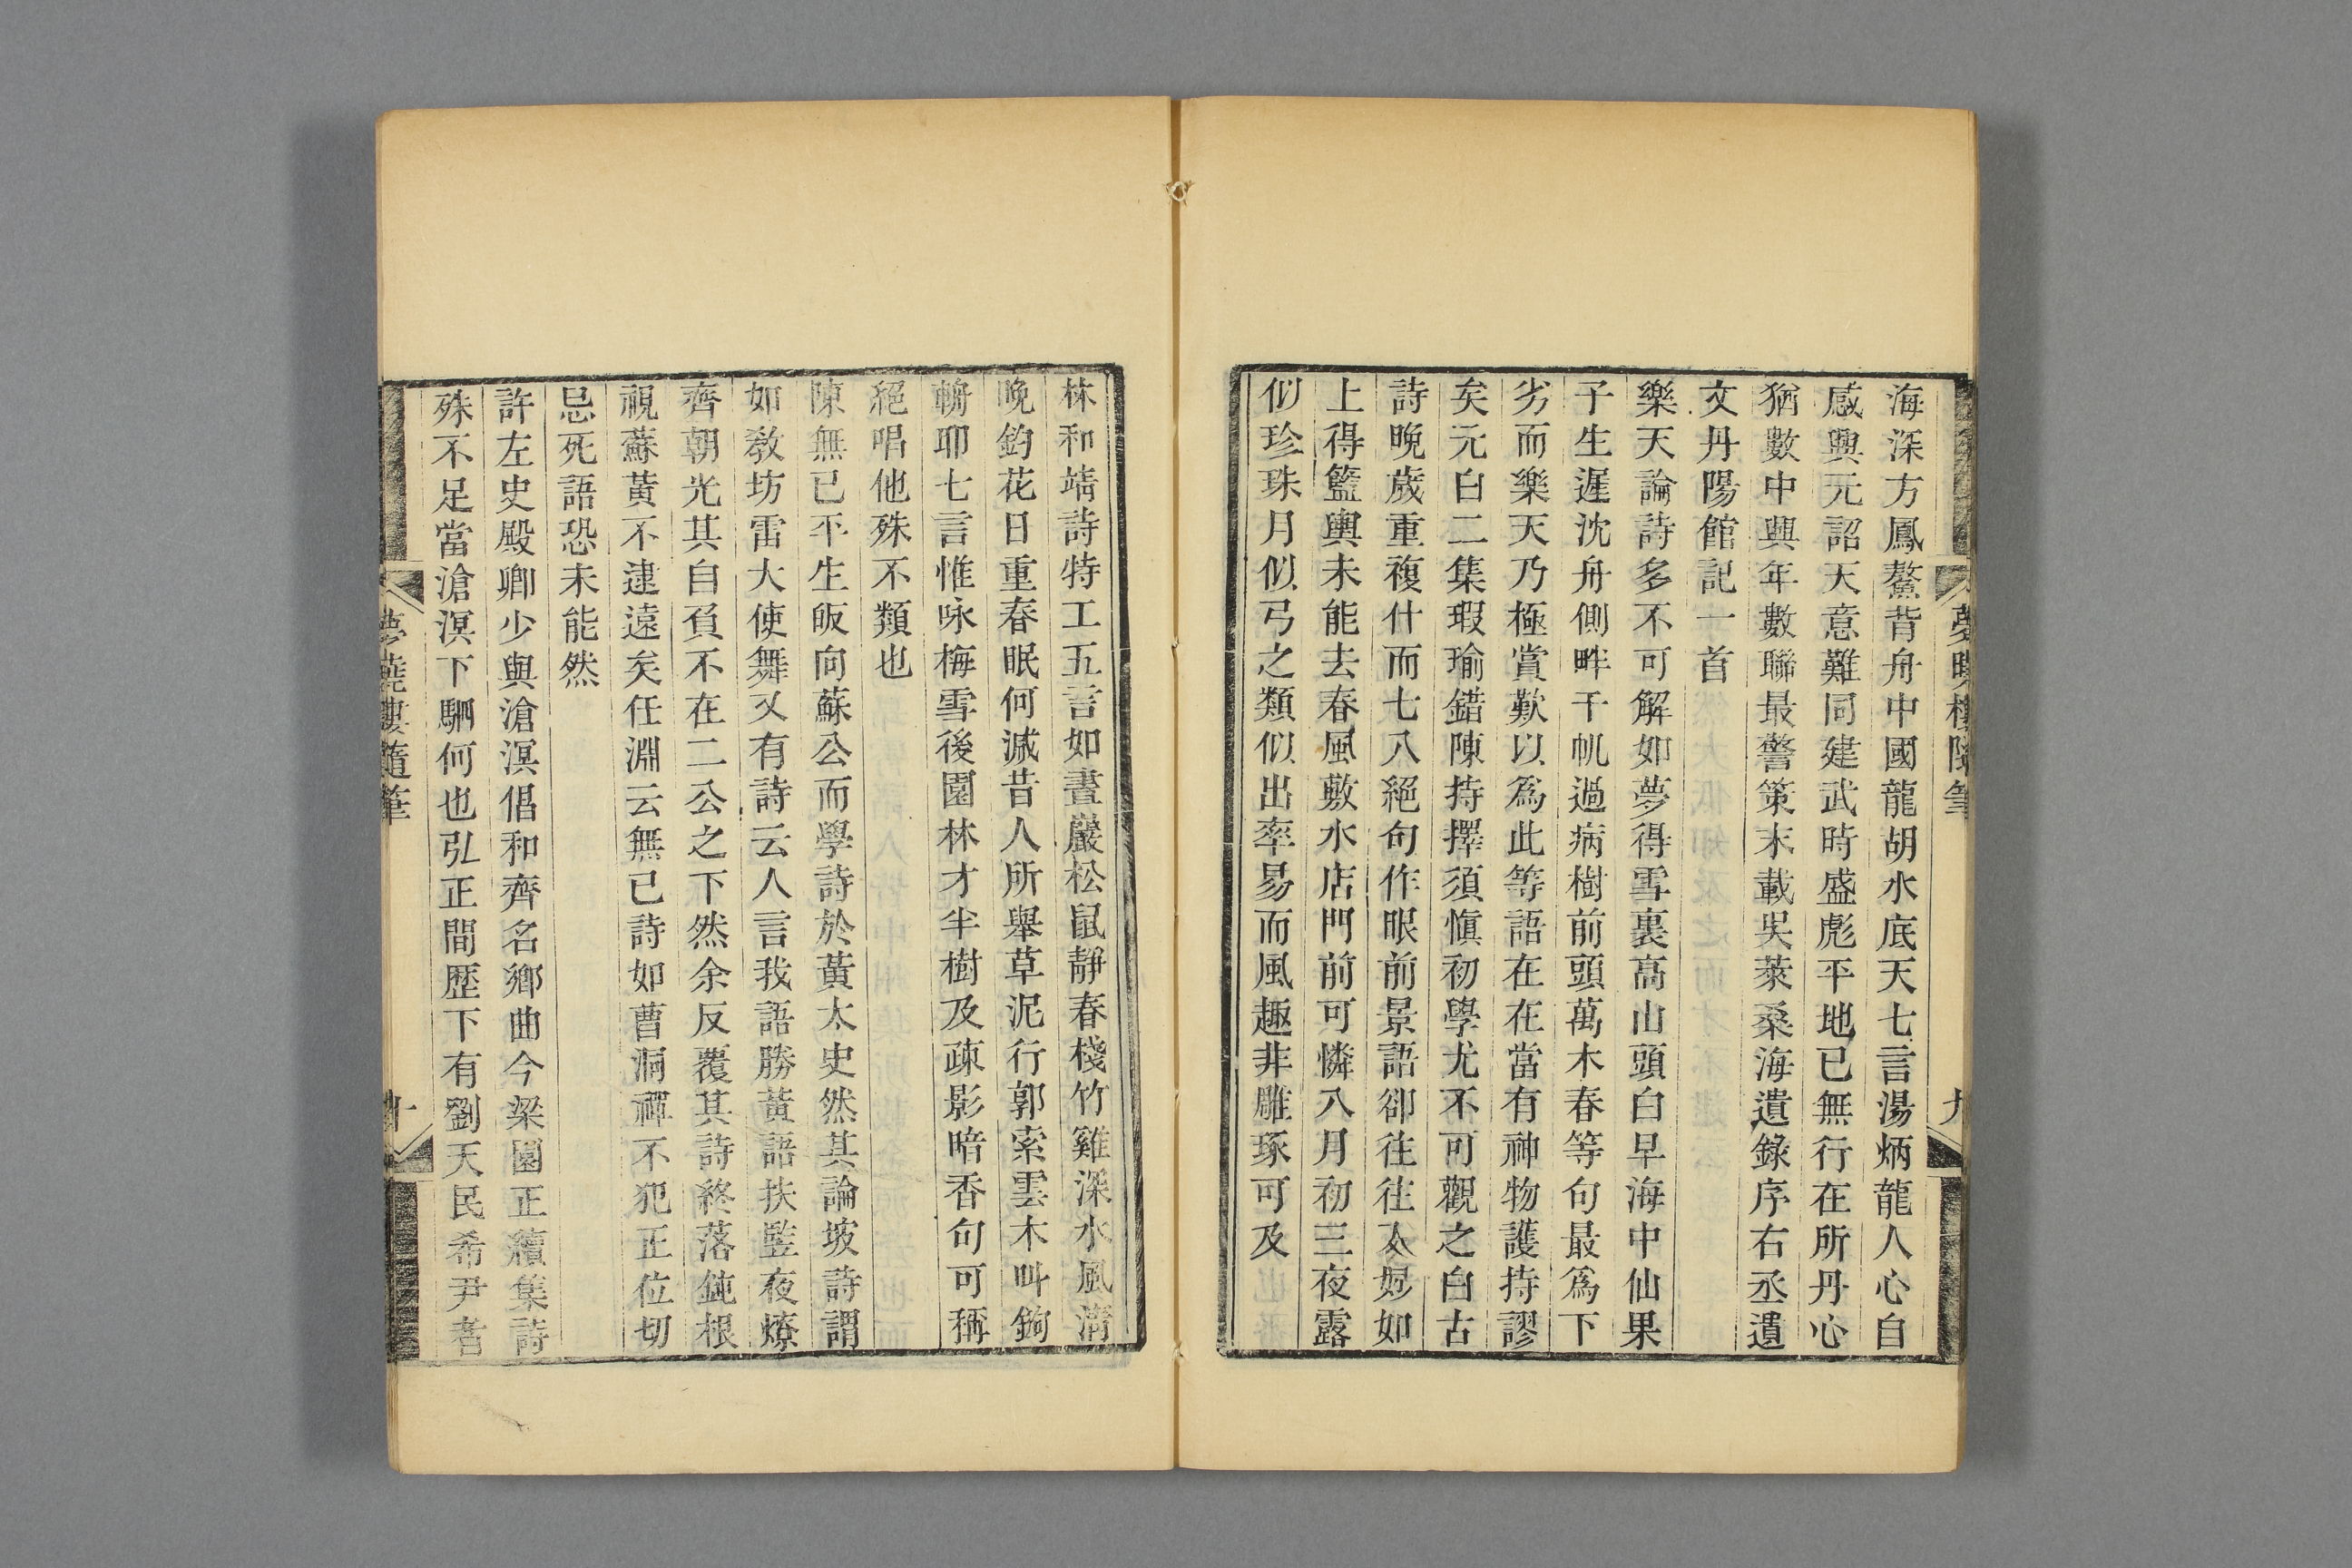 海深方鳳鰲背舟中國龍胡水底天七言湯炳龍人心自
感興元詔天意難同建武時盛彪平地已無行在所丹心
猶數中興年數聯最警策末載吳萊桑海遺錄序右丞遺
文丹陽館記一首
樂天論詩多不可解如夢得雪裏高山頭白早海中仙果
子生遲沈舟側畔千帆過病樹前頭萬木春等句最爲下
劣而樂天乃極賞歎以爲此等語在在當有神物護持謬
矣元白二集瑕瑜錯陳持擇須愼初學尤不可觀之白古
詩晚歲重複什而七八絕句作眼前景語卻往往入妙如
上得籃輿未能去春風敷水店門前可憐八月初三夜露
似珍珠月似弓之類似出率易而風趣非雕琢可及
夢曉樓隨筆
九
林和靖詩特工五言如晝巖松鼠靜春棧竹雞深水風淸
晚釣花日重春眠何減昔人所舉草泥行郭索雲木叫鉤
輈耶七言惟咏梅雪後園林才半樹及疎影暗香句可稱
絕唱他殊不類也
陳無已平生皈向蘇公而學詩於黃太史然其論坡詩謂
如教坊雷大使舞又有詩云人言我語勝黃語扶豎夜燎
齊朝光其自負不在二公之下然余反覆其詩終落鈍根
視蘇黃不逮遠矣任淵云無已詩如曹洞禪不犯正位切
忌死語恐未能然
許左史殿卿少與滄溟倡和齊名鄉曲今梁園正續集詩
殊不足當滄溟下駟何也弘正間歷下有劉天民希尹者
夢曉樓隨筆
十